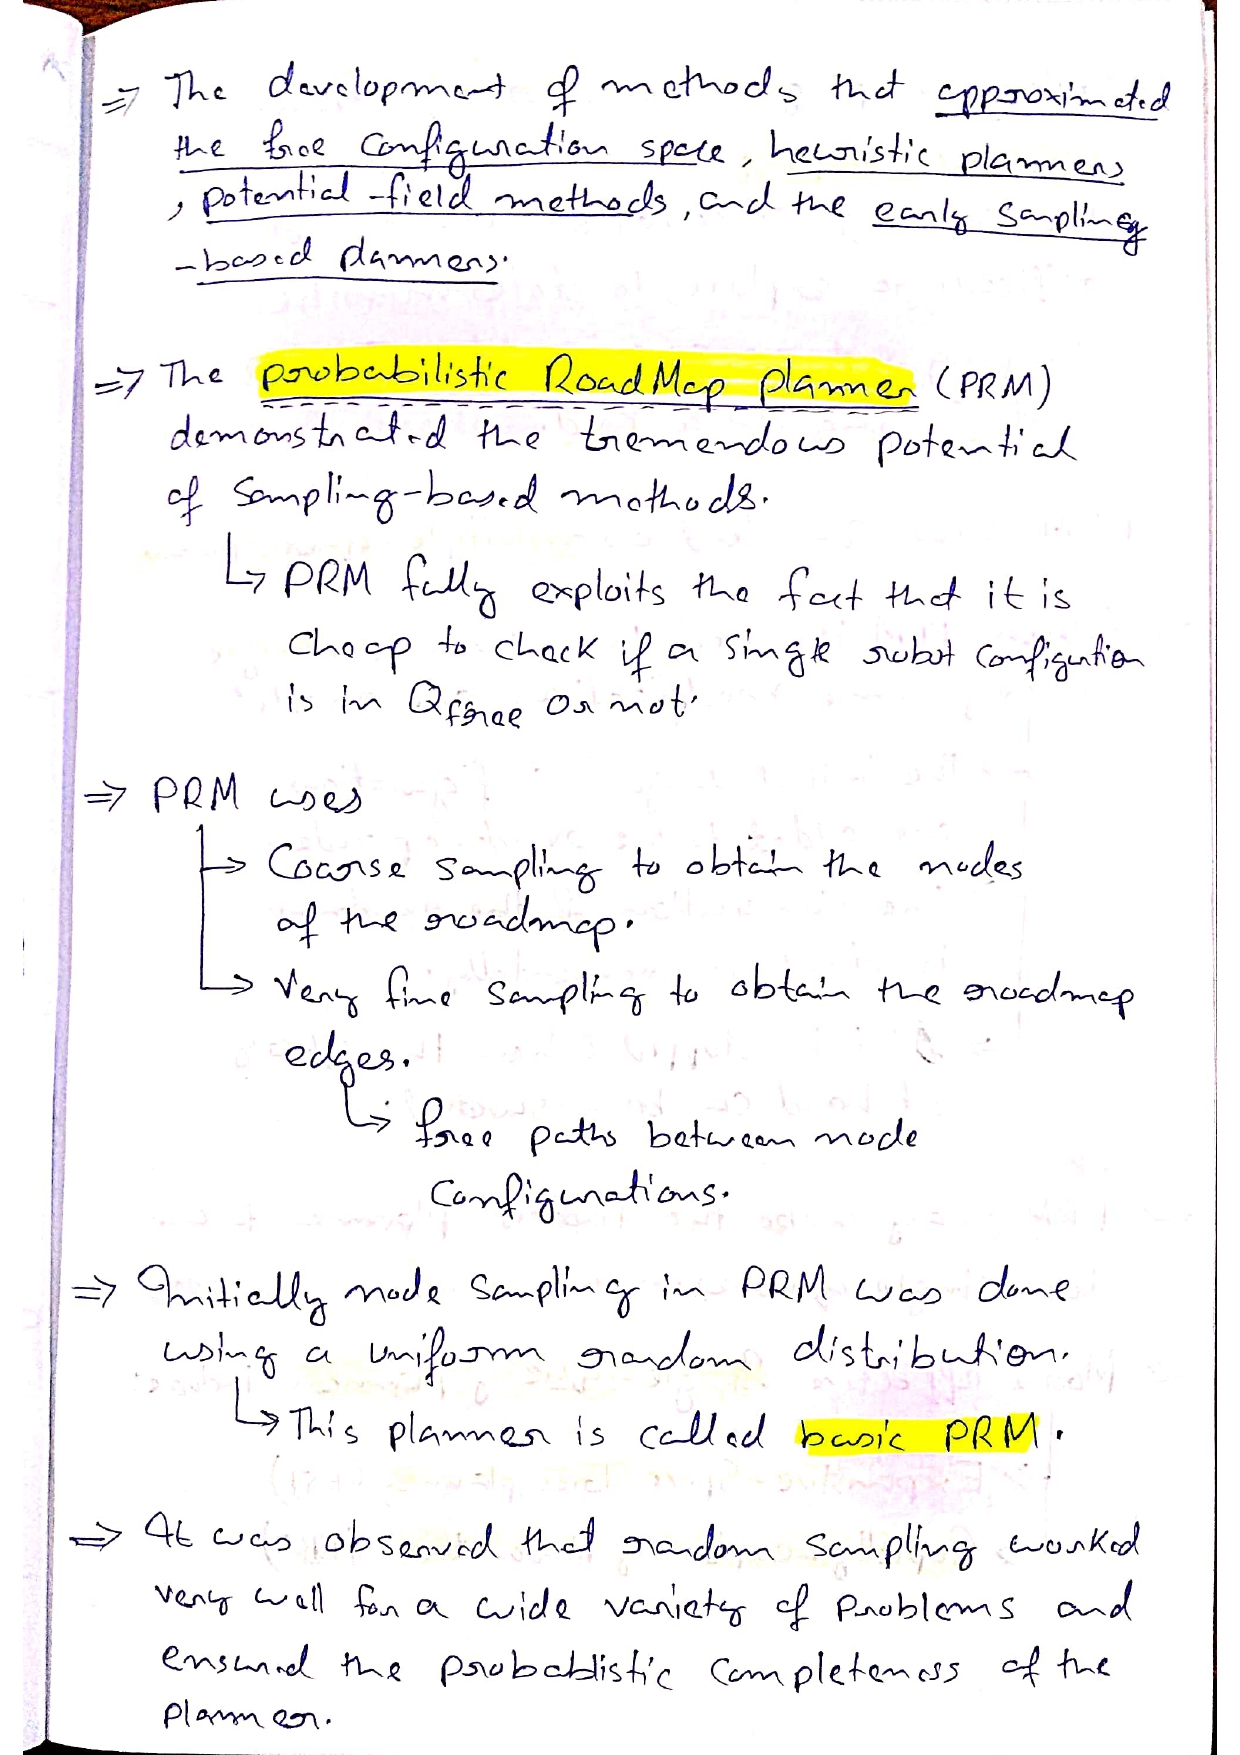 ⇒ The development of methods that approximated
the free configuration space, heuristic planners
, potential-field methods, and the early sampling
-based planners.
⇒ The probabilistic RoadMap planner (PRM)
demonstrated the tremendous potential
of sampling-based methods.
↳ PRM fully exploits the fact that it is
cheap to check if a single robot configution
is in Qfree or not.
⇒ PRM uses
→ Coarse sampling to obtain the nodes
of the roadmap.
→ Very fine sampling to obtain the roadmap
edges.
↳ free paths between node
configurations.
⇒ Initially node sampling in PRM was done
using a uniform random distribution.
↳ This planner is called basic PRM.
⇒ It was observed that random sampling worked
very well for a wide variety of problems and
ensured the probablistic completeness of the
planner.